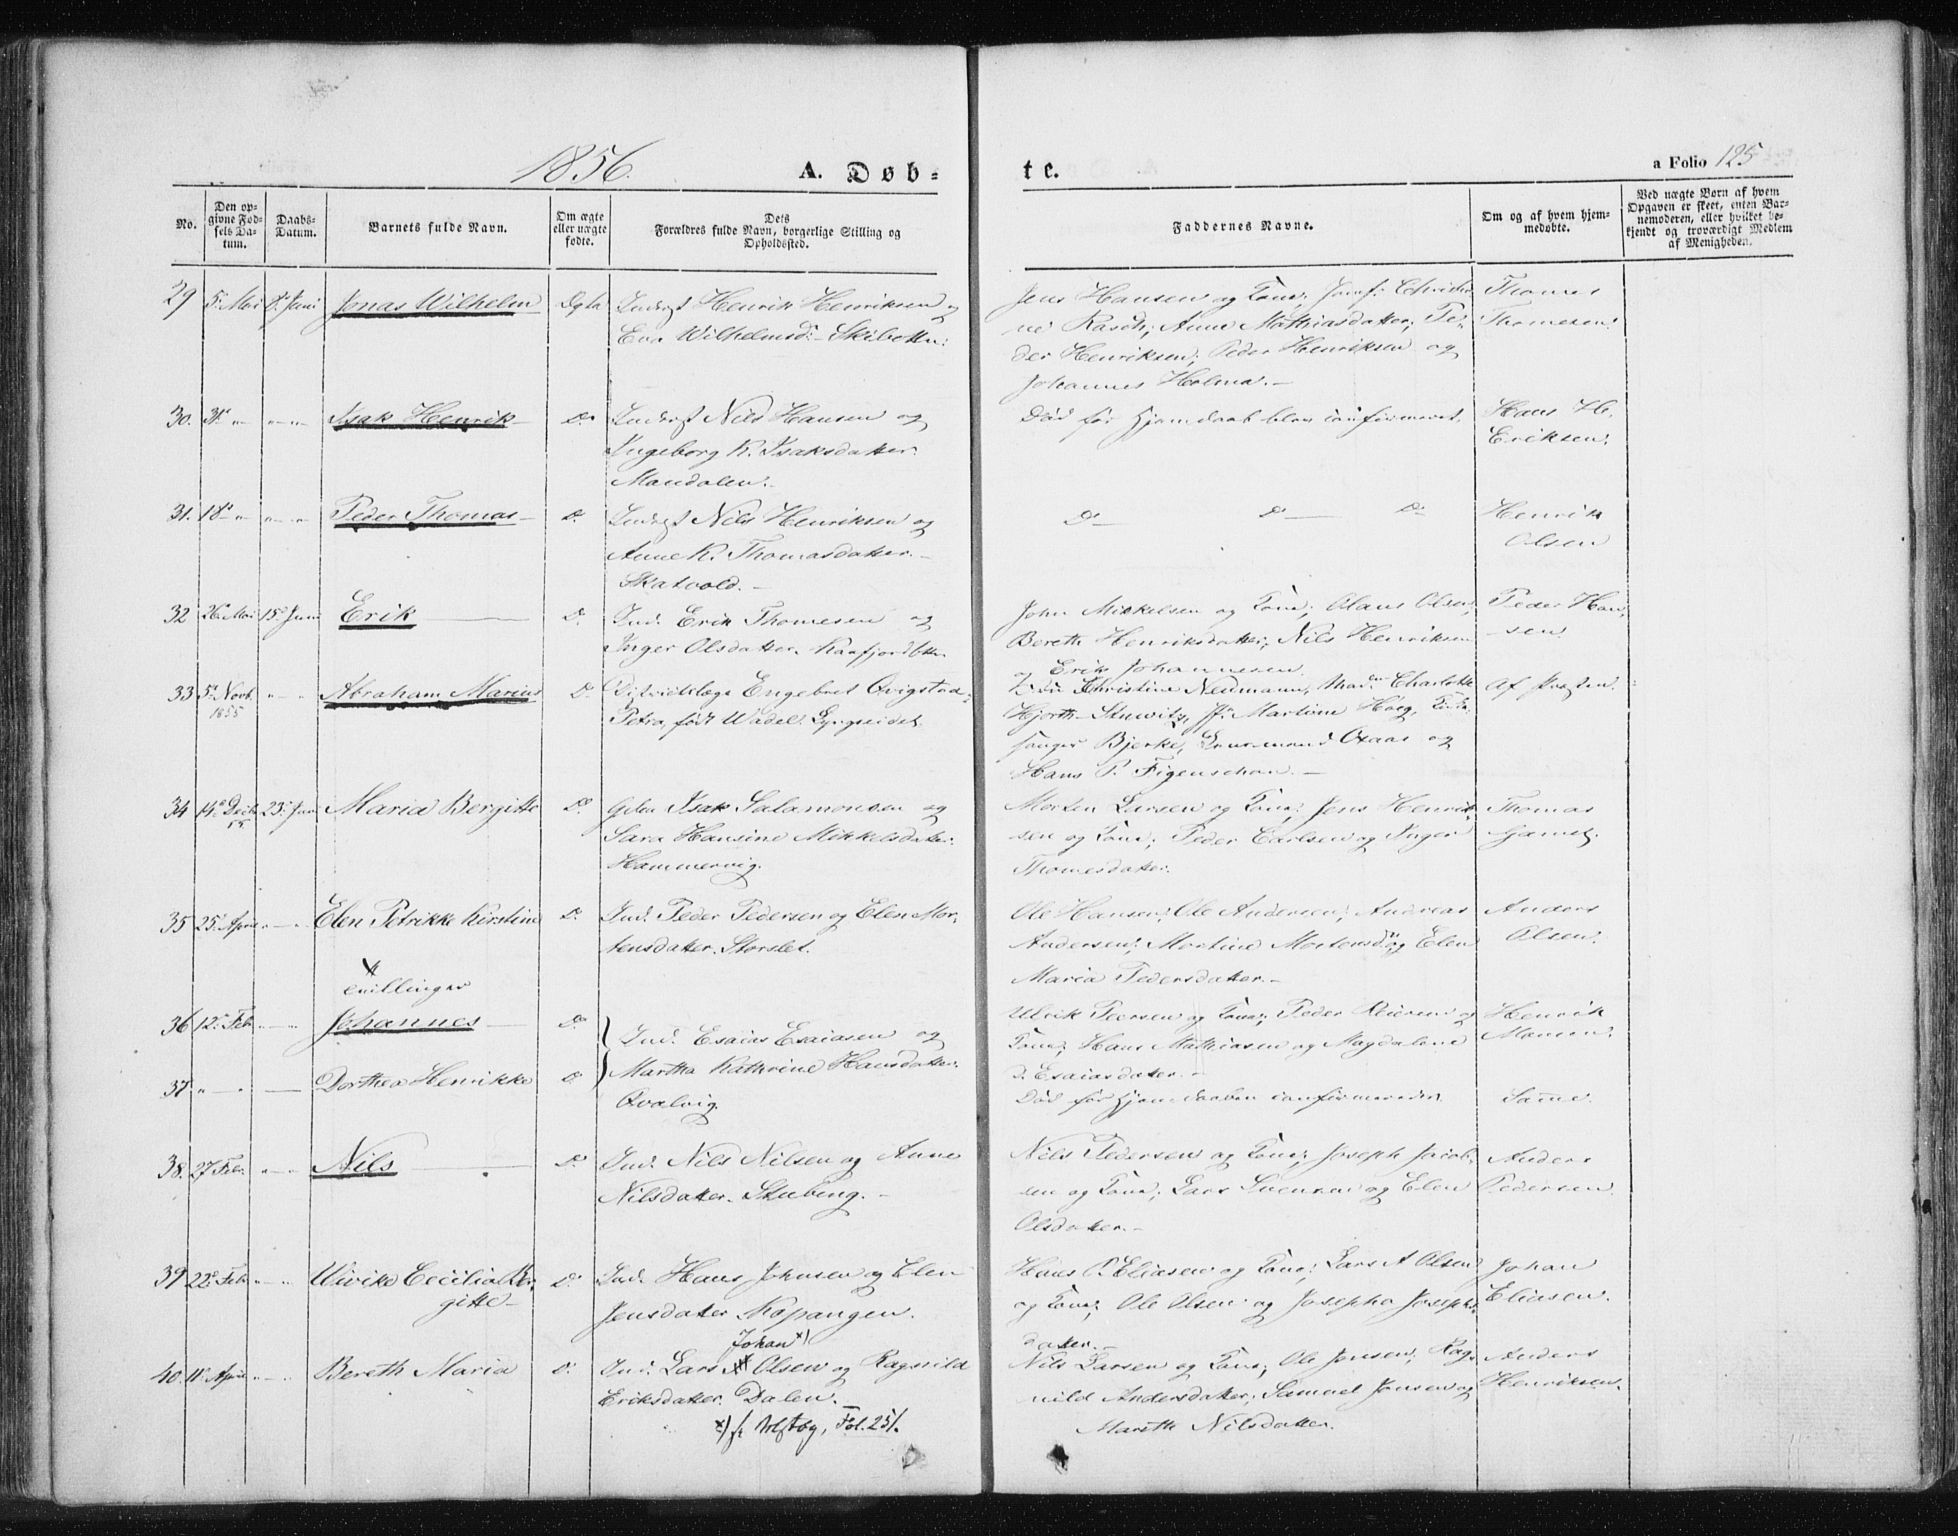 1856.
A. Døb-
te.
a Folio 125
No.
Den op-
givne Fød-
sels Da-
tum.
Daabs-
Datum.
Barnets fulde Navn.
Om ægte
eller uægte
fødte.
Dets
Forældres fulde Navn, borgerlige Stilling og
Opholdssted.
Faddernes Navne.
Om og af hvem hjem-
medøbte.
Ved uægte Børn af hvem
Opgaven er skeet, enten Bar-
nemoderen, eller hvilket be-
kjendt og troværdigt Medlem
af Menigheden.
29 5. Mai 8. Juni Jonas Wilhelm Ægte Henrik Henriksen og
Eva Wilhelmsd: Skibotten:
Jens Hansen og Kone; Jomf: Christi-
ne Rasch; Anne Mathiasdatter; Pe-
der Henriksen; Peder Henriksen og
Johannes Holma. -
Thomas
Thomesen.
30. 31. " " Isak Henrik Do Nils Hansen og
Ingeborg K. Isaksdatter.
Mandalen.
Død før Hjemdaab blev confirmeret.
Hans H.
Eriksen.
31. 18. " " Peder Thomas Do Nils Henriksen og
Anne K. Thomasdatter.
Skatvold. -
Do Do Do
Henrik
Olsen
32 26. Mai 15. Juni Erik Do Ind. Erik Thomesen og
Inger Olsdatter. Kaafjordbtn.
John Mikkelsen og Kone; Olaus Olsen;
Bereth Henriksdatter; Nils Henriksen
og Erik Johannesen
Peder Han-
sen.
33 5. Novb. 1855 " " Abraham Marius Do Districtslæge Engebret Qvigstad-
Petra, født Wadel. Lyngseidet.
Christine Neumann, Mad. Charlotte
Hjorth- Stuwitz, Jfr Martine Hoeg, Kirke-
sanger Bjerke, Lensmand Oxaas og
Hans P. Figenschou. -
Af Præsten.
34 14. Decb. 55 23. Juni Maria Bergitte Do Isak Salamonsen og
Sara Hansine Mikkelsdatter.
Hammervig.
Morten Larsen og Kone; Jens Henrik-
sen og Kone; Peder Carlsen og Inger
Thomesdatter.
Thomas
35 25. April " " Elen Petrikke Kirstine Do Ind. Peder Pedersen og Elen Mor-
tensdatter. Storslet.
Ole Hansen; Ole Andersen; Andreas
Andersen; Martine Mortensd. og Elen
Maria Pedersdatter. -
Anders
Olsen.
tvillinger
36 12. Feb " " Johannes Do Ind. Esaias Esaiasen og
Martha Kathrine Hansdatter.
Qvalvig.
Ulrik Peersen og Kone; Peder og
Kone; Hans Mathiasen og Magdalene
D. Esaiasdatter. -
Henrik
Monsen.
37 " " Dorthea Henrikke Do
Død før Hjemdaaben confirmeredes
Samme.
38. 27 Feb. " " Nils Do Ind. Nils Nilsen og Anne
Nilsdatter. Stubeng. -
Nils Pedersen og Kone; Joseph Jacob-
sen og Kone; Lars Svensen og Elen
Olsdatter. -
Anders
Pedersen.
39 22. Feb " " Ulrikke Cecilia Ber-
gitte Do Ind. Hans Johnsen og Elen
Jensdatter Kopangen.
Hans P. Eliasen og Kone; Lars A Olsen
og Kone; Ole Olsen og Josepha Josephs-
datter.
Johan
Eliasen.
Johan x)
40. 11. April " " Bereth Maria Do Ind. Lars Olsen og Ragnild
Eriksdatter. Dalen.
x) Fol. 251.
Nils Larsen og Kone; Ole Jonsen; Rag-
nild Andersdatter; Samuel Jonsen og
Marith Nilsdatter.
Anders
Henriksen.